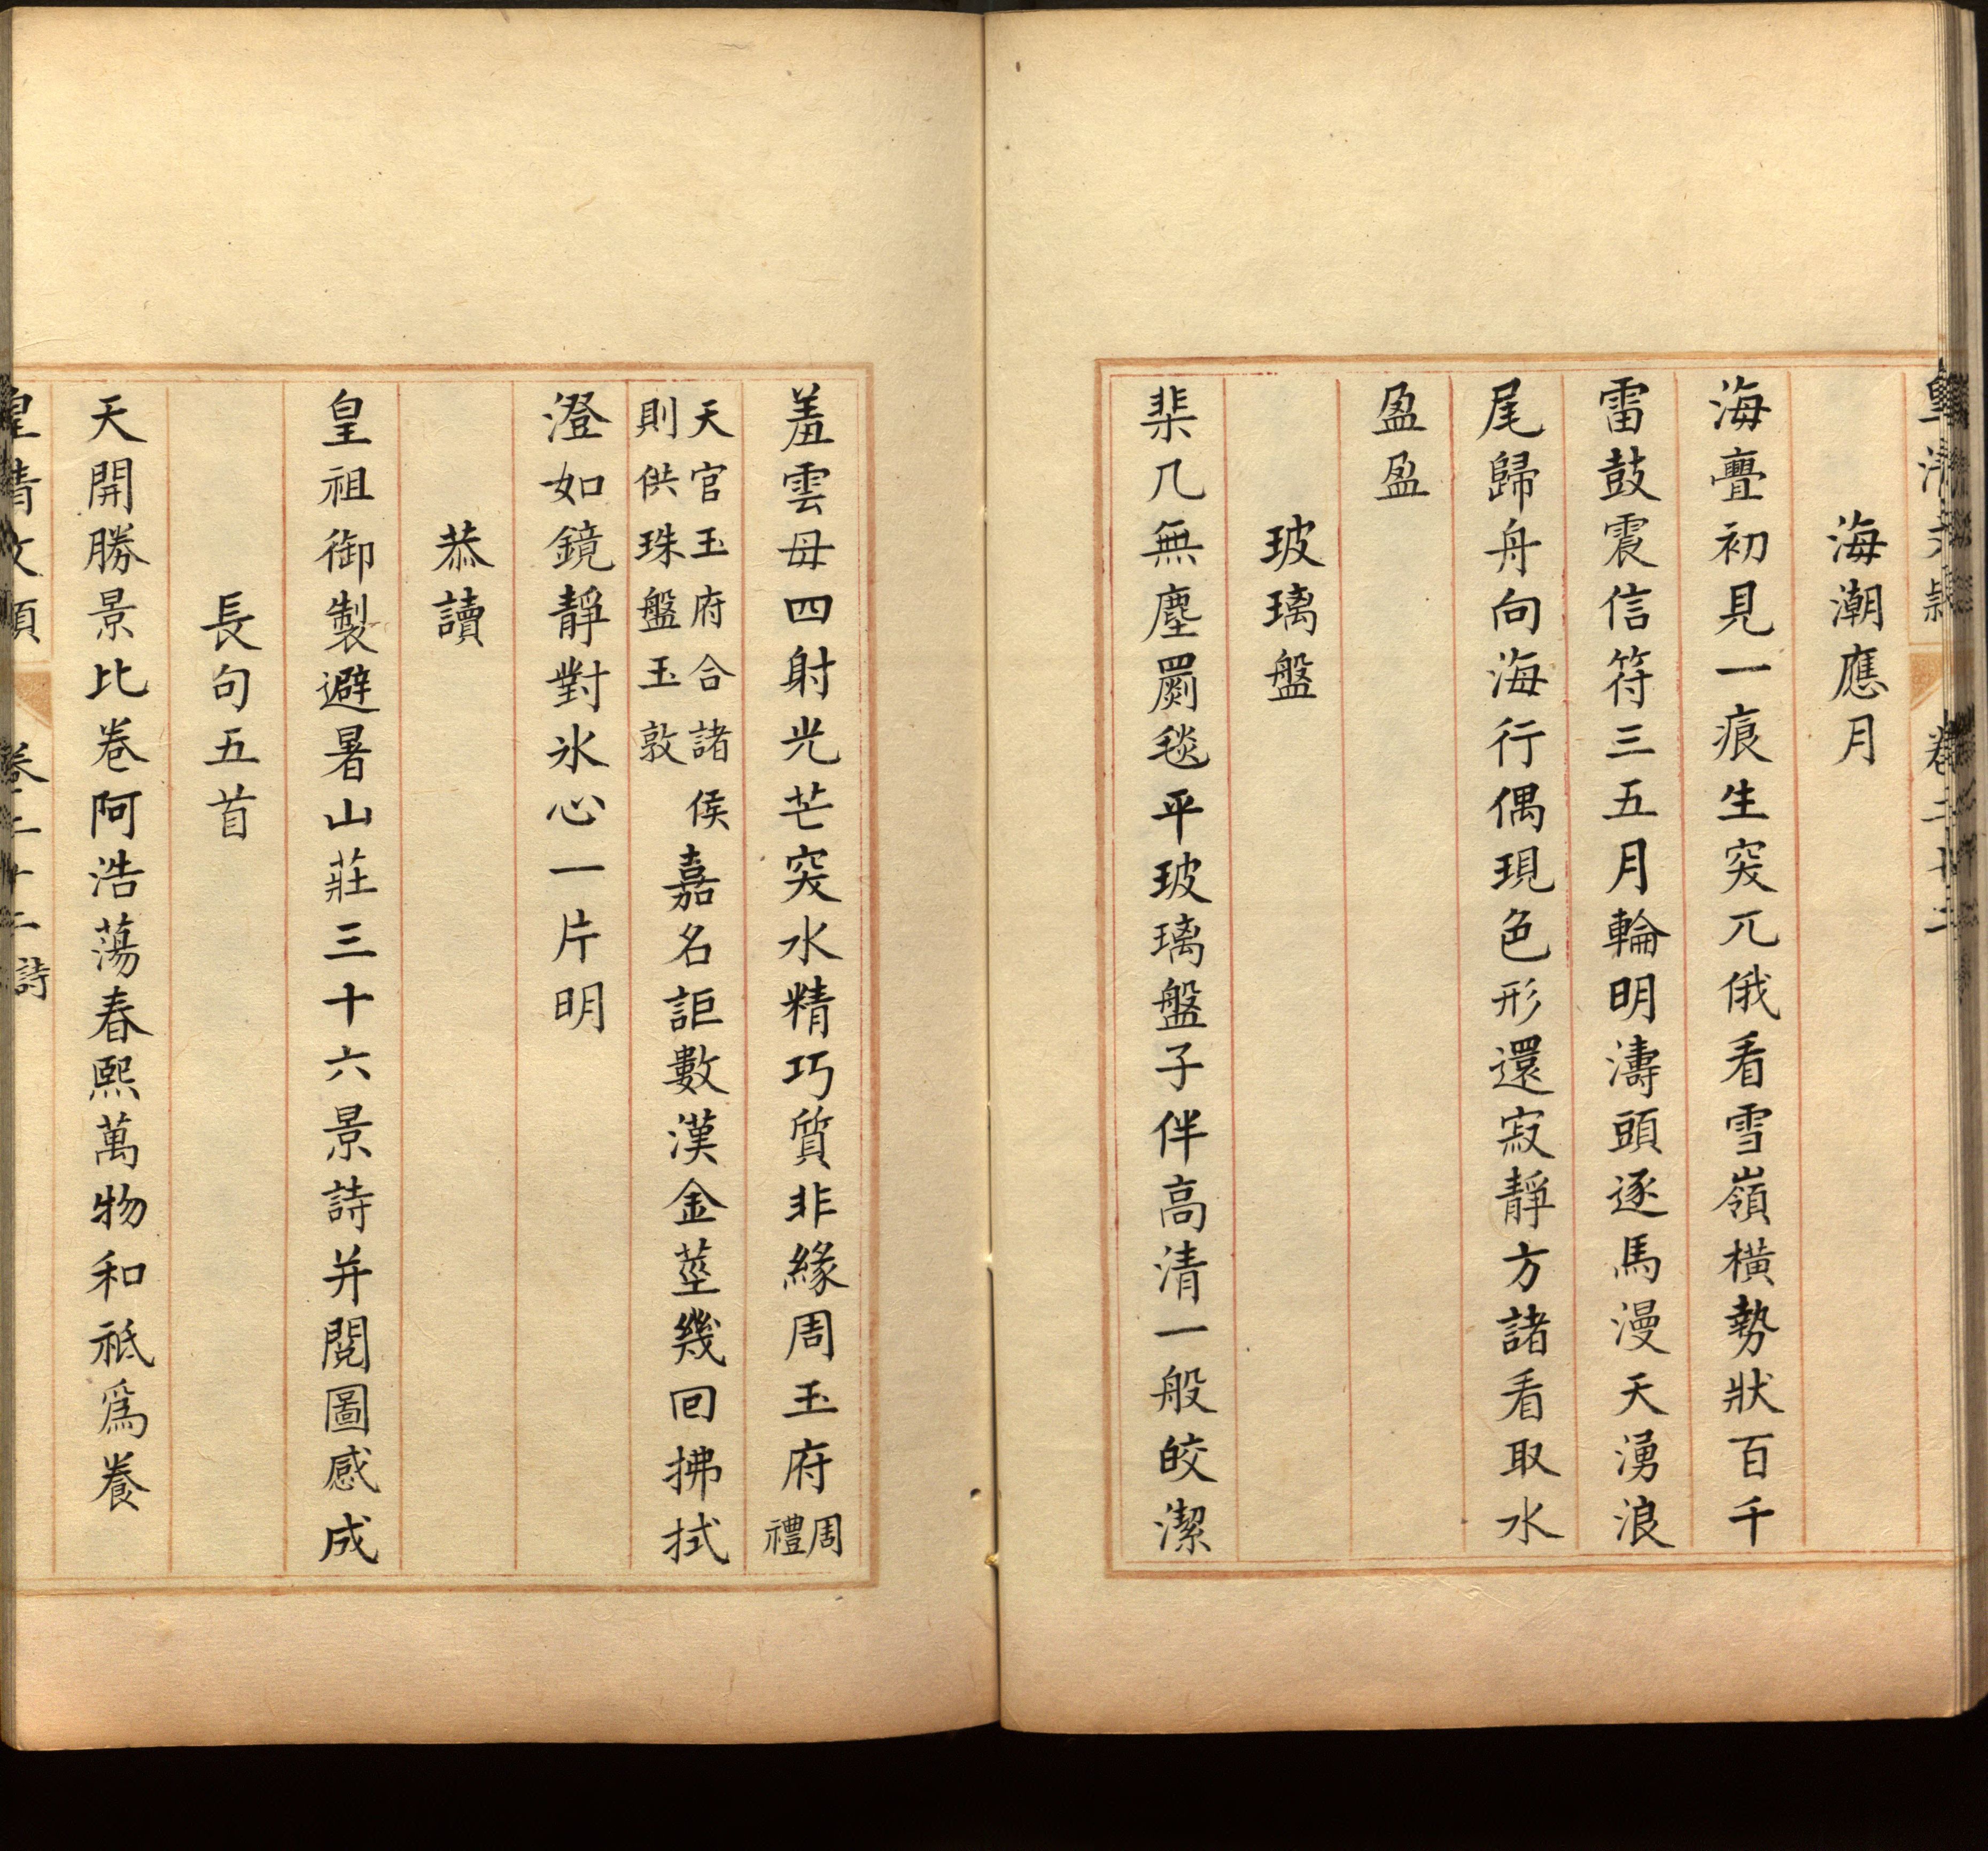 海潮應月
海亹初見一痕生突兀俄看雪嶺橫勢狀百千
雷鼓震信符三五月輪明濤頭逐馬漫天湧浪
尾歸舟向海行偶現色形還寂靜方諸看取水
盈盈
玻璃盤
棐几無塵罽毯平玻璃盤子伴高清一般皎潔
羞雲母四射光芒突水精巧質非緣周玉府周禮
天官玉府合諸侯則供珠盤玉敦嘉名詎數漢金莖幾回拂拭
澄如鏡靜對冰心一片明
恭讀
皇祖御製避暑山莊三十六景詩并閱圖感成
長句五首
天開勝景比卷阿浩蕩春熙萬物和祗爲養
皇清文穎 卷二十二 詩